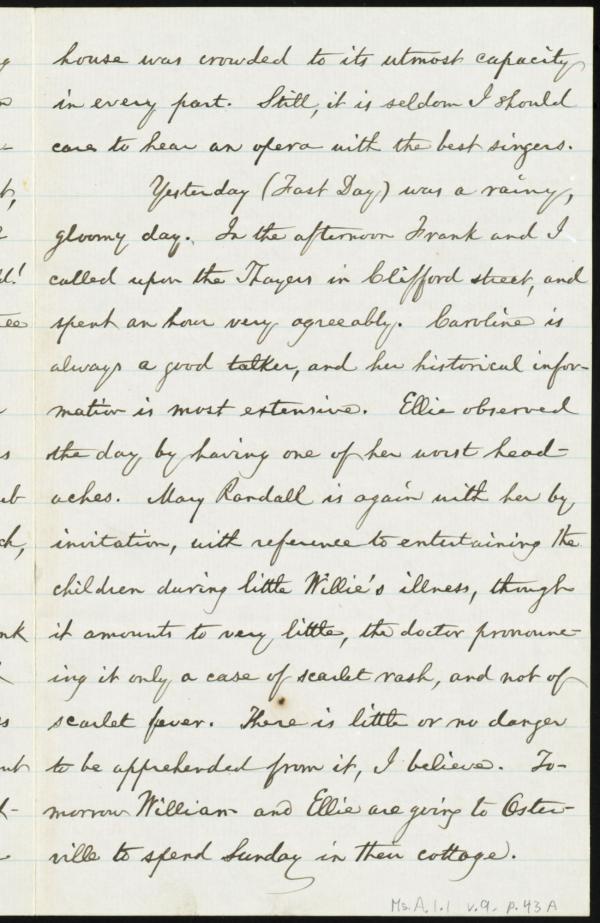 house was crowded to its utmost capacity
in every part. Still, it is seldom I should
care to hear an opera with the best singers.
Yesterday (Fast Day) was a rainy,
gloomy day. In the afternoon Frank and I
called upon the Thayers in Clifford street, and
spent an hour very agreeably. Caroline is
always a good talker, and her historical infor-
mation is most extensive. Ellie observed
the day by having one of her worst head-
aches. Mary Randall is again with her by
invitation, with reference to entertaining the
children during little Willie's illness, though
it amounts to very little, the doctor pronounc-
ing it only a case of scarlet rash, and not of
scarlet fever. There is little or no danger
to be apprehended from it, I believe. To-
morrow William and Ellie are going to Oster-
ville to spend Sunday in their cottage.
Ms. A. 1. 1 v. 9. p. 43 A